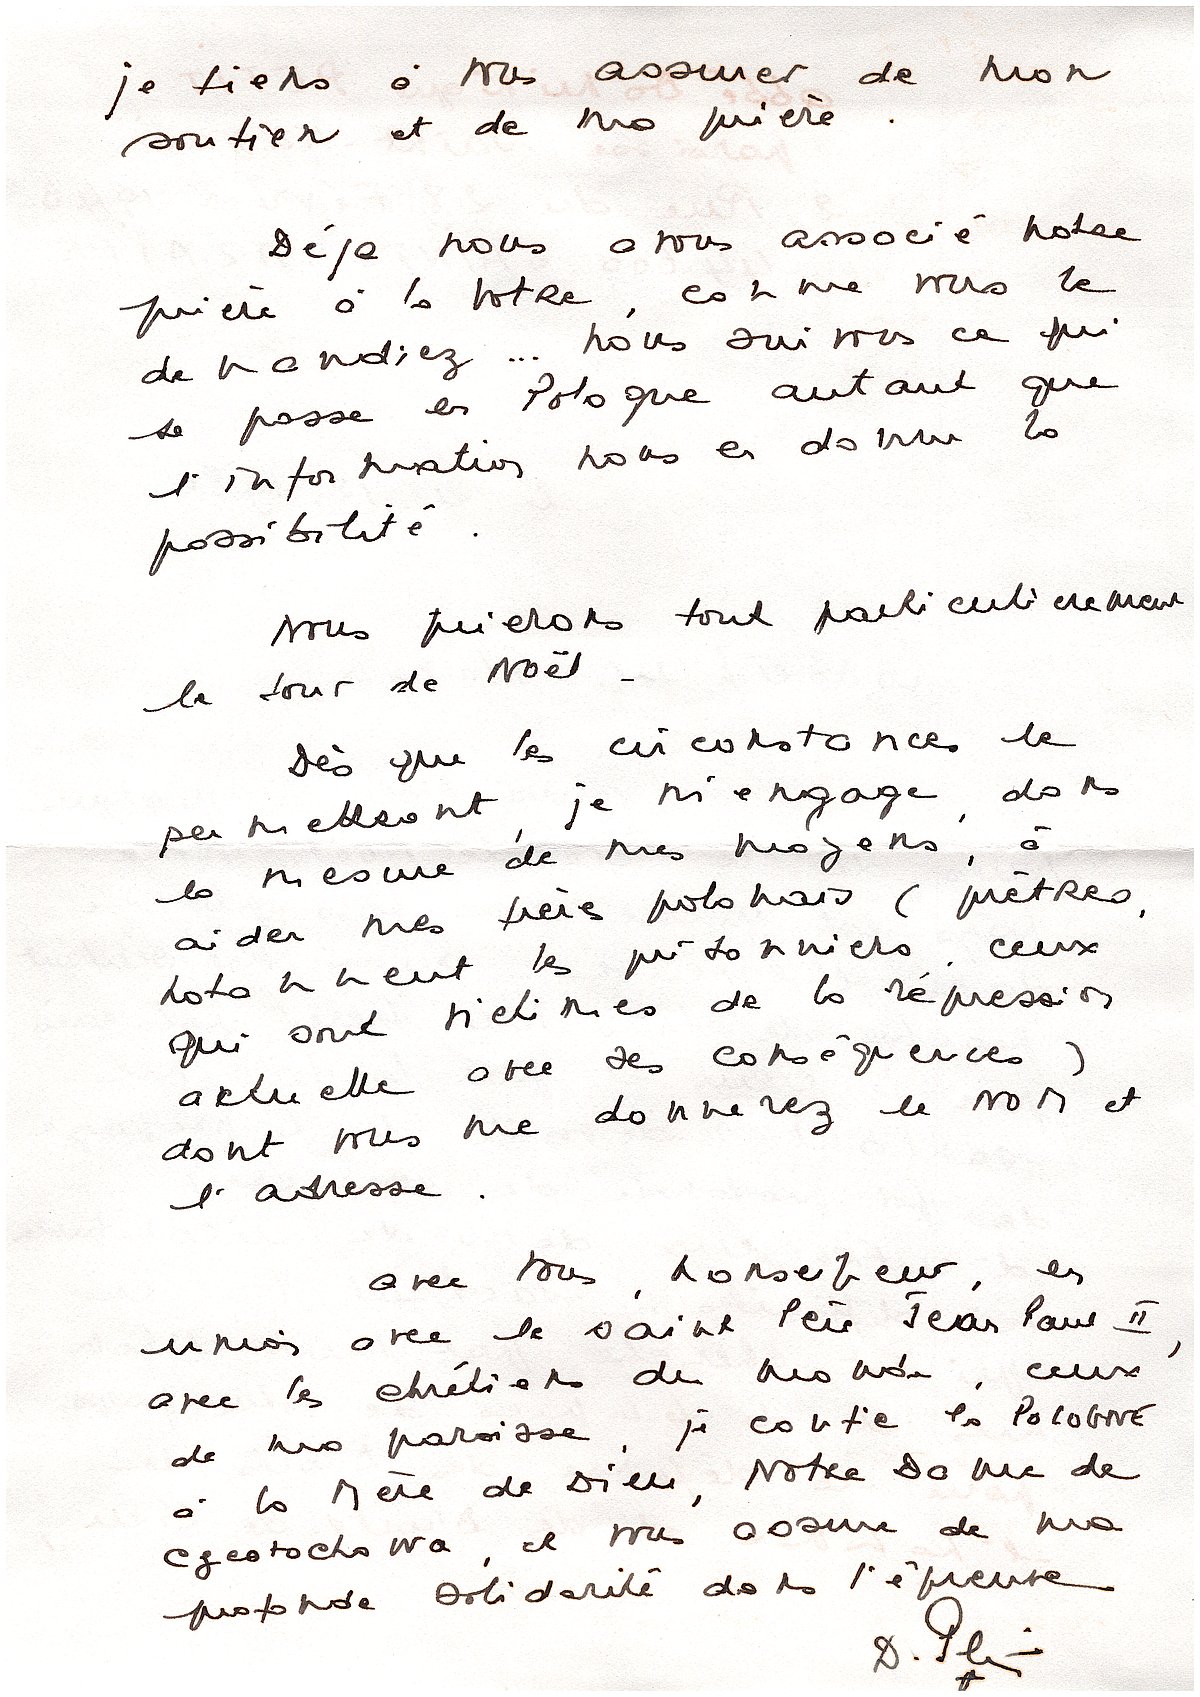 je tiens à vous assurer de mon
soutien et de ma prière.
Déjà nous avons associé notre
prière à la vôtre, comme vous le
demandiez... nous suivons ce qui
se passe en Pologne autant que
l'information nous en donne la
possibilité.
Nous prierons tout particulièrement
le jour de Noël -
Dès que les circonstances le
permettront, je m'engage, dans
la mesure de mes moyens, à
aider mes frères polonais (prêtres,
notamment les prisonniers, ceux
qui sont victimes de la répression
actuelle avec ses conséquences)
dont vous me donnerez le NOM et
l'adresse.
avec vous, Monseigneur, en
union avec le saint Père Jean Paul II,
avec les chrétiens du monde, ceux
de ma paroisse, je confie la POLOGNE
à la Mère de Dieu, Notre Dame de
Czestochowa, et vous assure de ma
profonde solidarité dans l'épreuve
D.